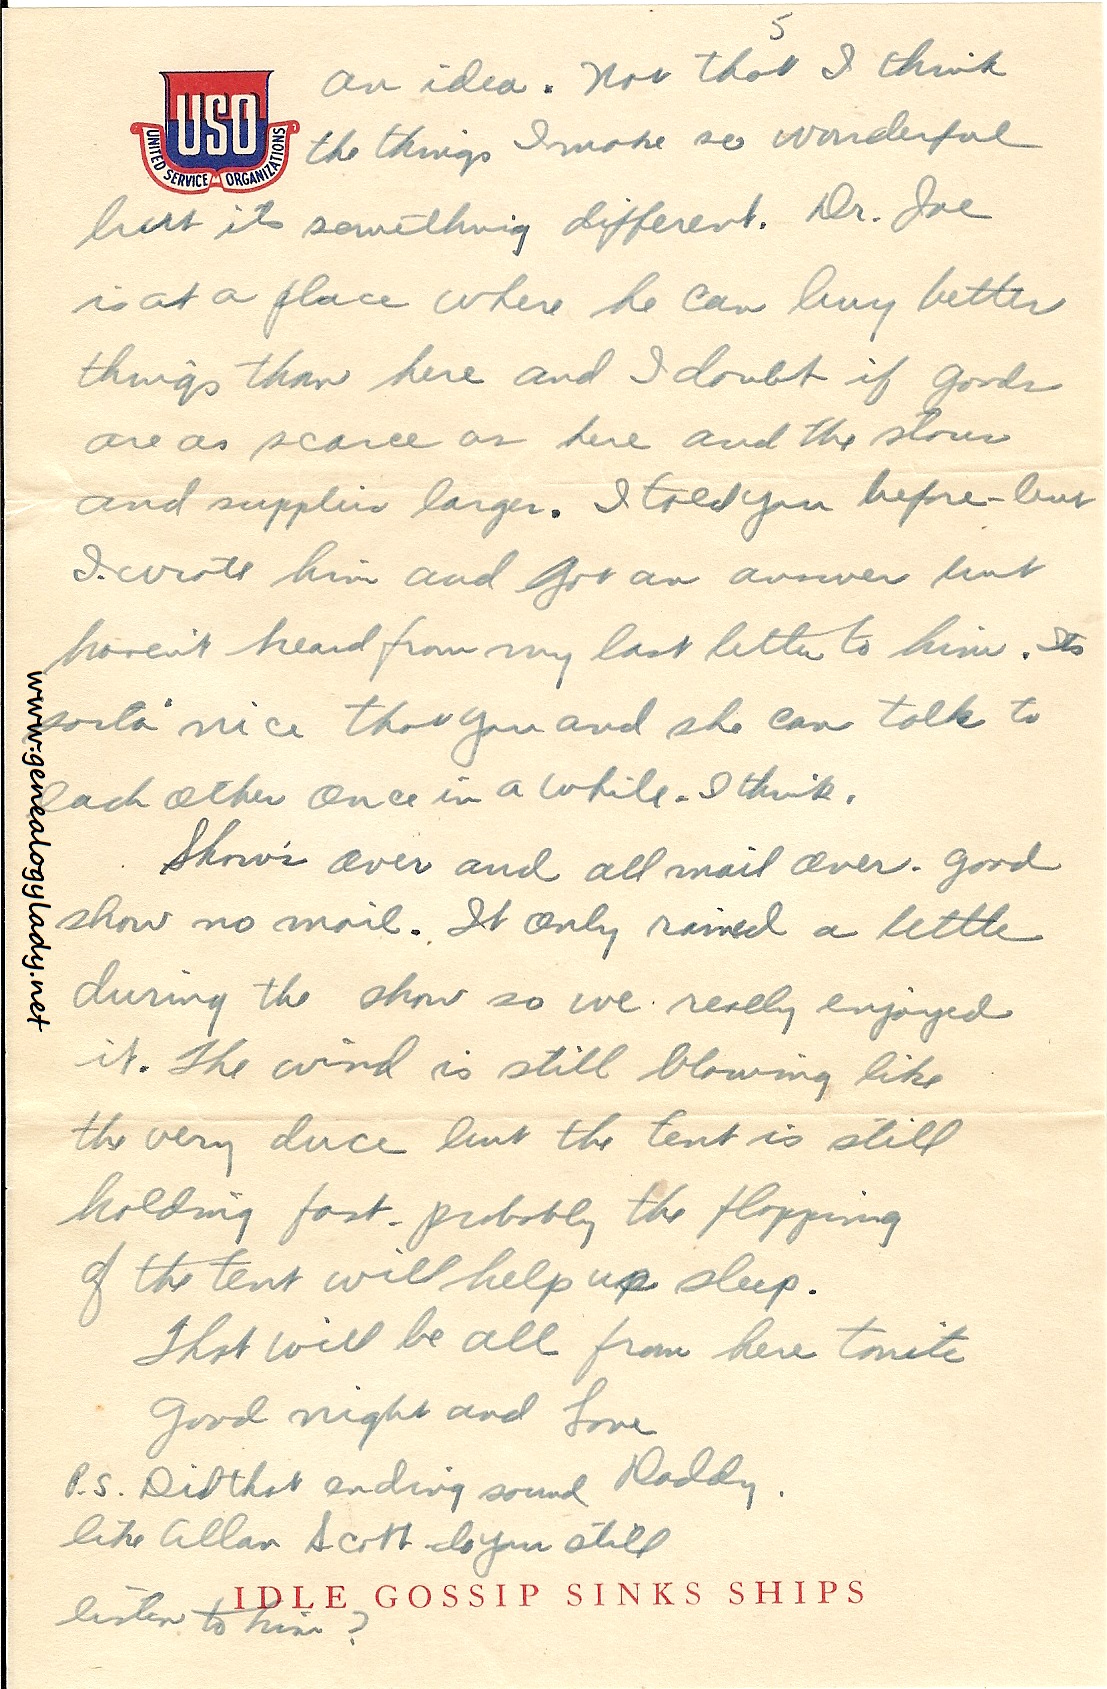 5
USO
UNITED SERVICE ORGANIZATIONS
an idea. Not that I think
the things I make so wonderful
but its something different. Dr. Joe
is at a place where he can buy better
things than here and I doubt if goods
are as scarce as here and the stores
and supplies larger. I told you before - but
I wrote him and got an answer but
haven't heard from my last letter to him. Its
sorta' nice that you and she can talk to
each other once in a while - I think.
Show's over and all mail over - good
show no mail. It only rained a little
during the show so we really enjoyed
it. The wind is still blowing like
the very duce but the tent is still
holding fast - probably the flopping
of the tent will help us sleep.
That will be all from here tonite
Good night and Love
Daddy.
P.S. Did that ending sound
like Allan Scott - do you still
listen to him?
IDLE GOSSIP SINKS SHIPS
www.genealogylady.net